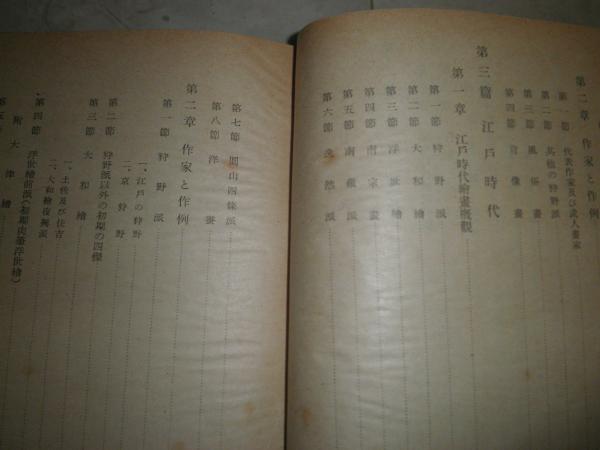 第二章 作家と作例
第一節 代表作家及び武人畫家
第二節 其他の狩野派
第三節 風俗畫
第四節 肖像畫
第三篇 江戸時代
第一章 江戸時代繪畫槪觀
第一節 狩野派
第二節 大和繪
第三節 浮世繪
第四節 南宗畫
第五節 南蘋派
第六節 派
第七節 圓山四條派
第八節 洋畫
第二章 作家と作例
第一節 狩野派
一、江戸の狩野
二、京狩野
第二節 狩野派以外の初期の四傑
第三節 大和繪
一、土佐及び住吉
二、大和繪復興派
第四節 浮世繪前派(初期肉筆浮世繪)
附 大津繪